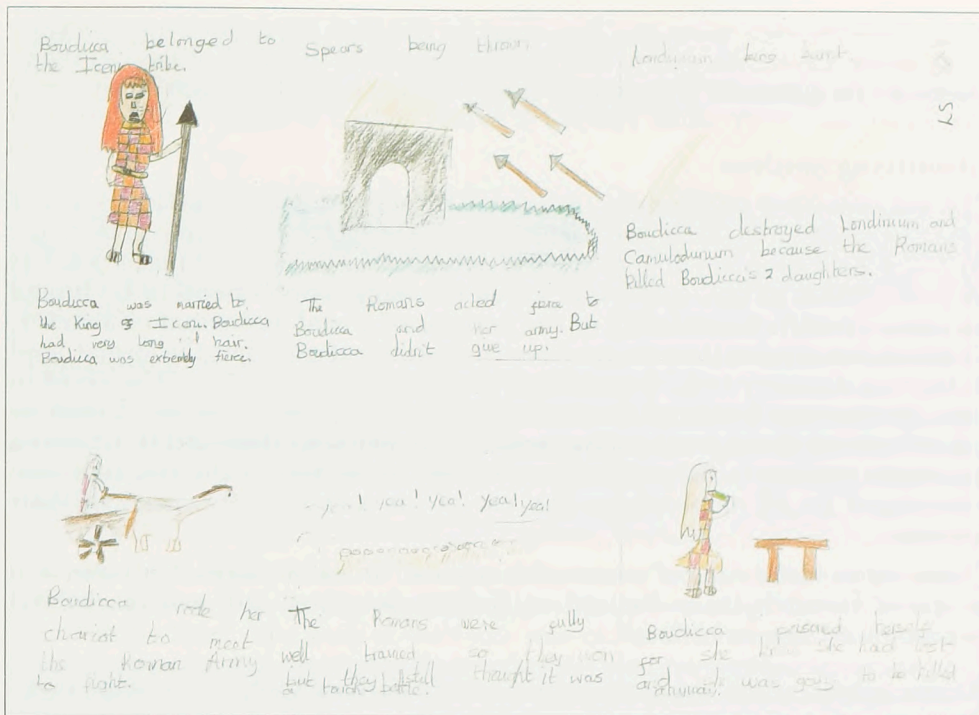 Boudicca belonged to
the Iceni tribe.
Boudicca was married to
the King of Iceni. Boudicca
had very long hair.
Boudicca was extremly fierce.
Spears being thrown
The Romans acted fierce to
Boudicca and her army. But
Boudicca didn't give up.
Londinium burnt
Boudicca destroyed Londinium and
Camulodunum because the Romans
killed Boudicca's 2 daughters.
Boudicca rode her
chariot to meet
the Roman Army
to fight.
yea! yea! yea! yea! yea!
The Romans were fully
well trained so they won
but they still thought it was
a battle.
Boudicca herself
for she knew she had lost
and was going to be killed
anyway.